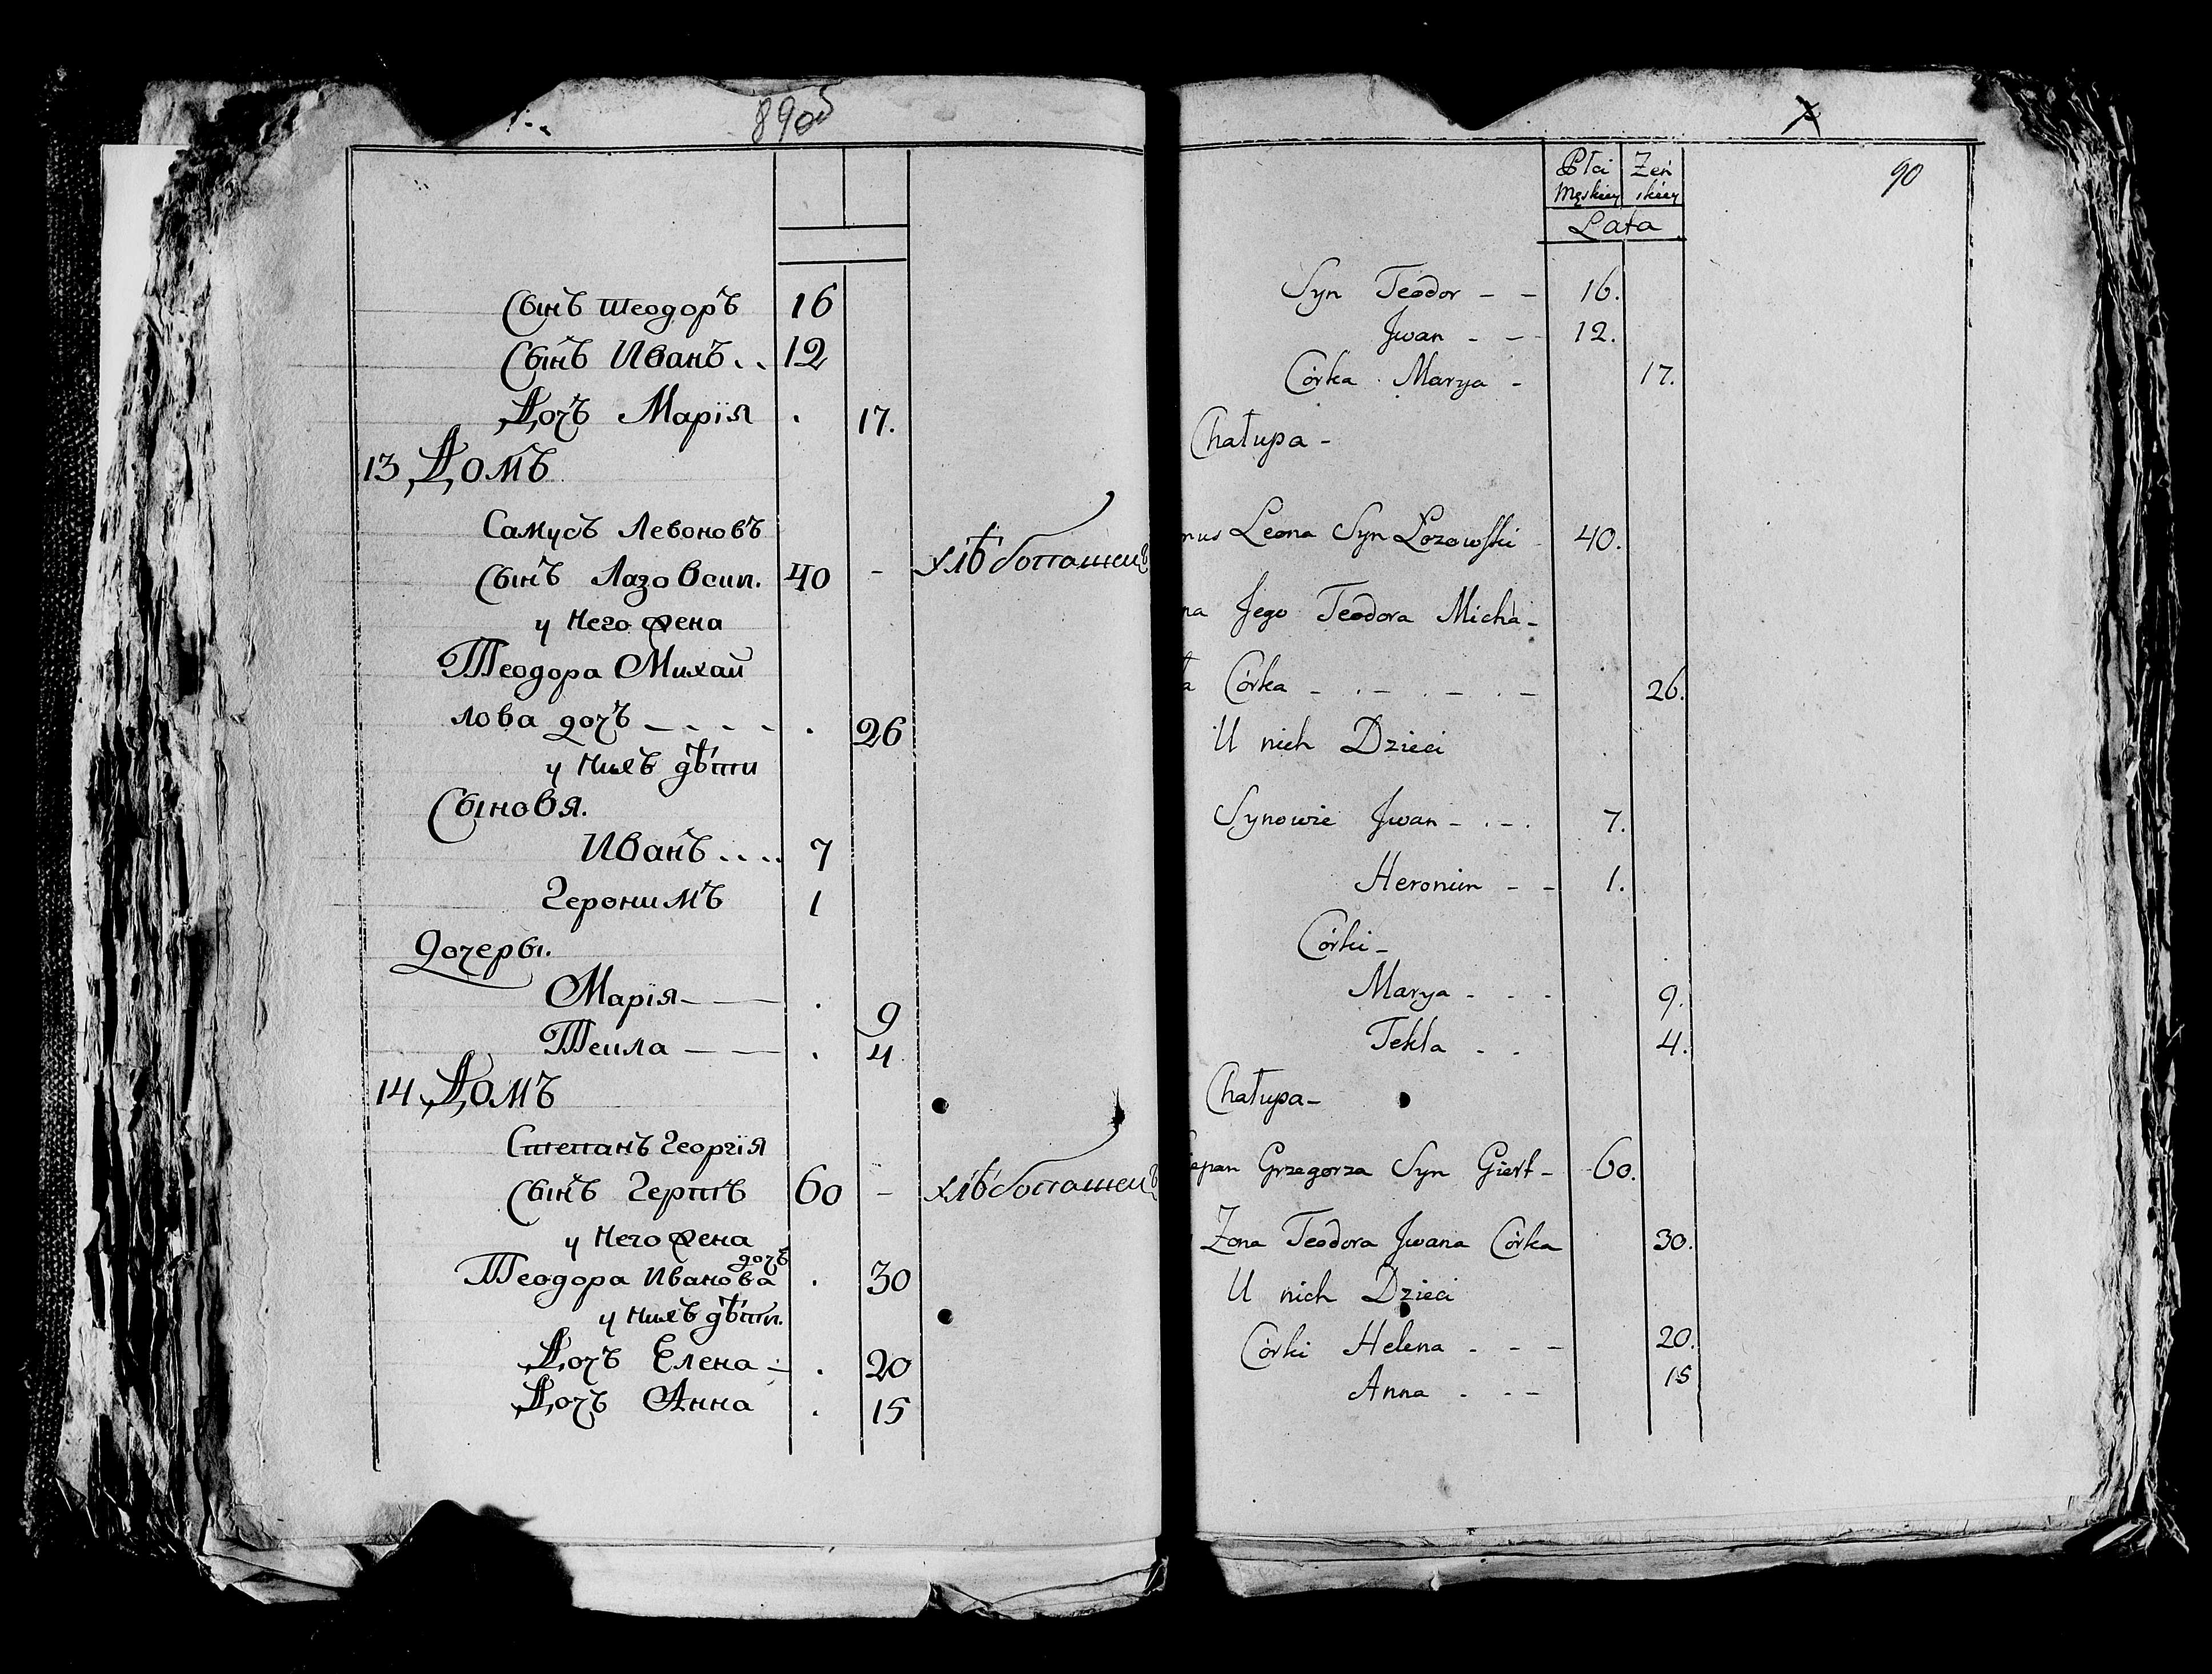 890б
Сынъ Теодоръ 16
Сынъ Иванъ . . 12
Дочъ Марїя . 17.
13 Домъ
Самусъ Левоновъ
Сынъ Лазовски. 40 - хлѣбопашецъ
у Него жена
Теодора Михай
лова дочъ - - - - . 26
у нихъ дѣти
Сыновя.
Иванъ . . . . 7
Геронимъ 1
Дочеры.
Марїя - — . 9
Текла — — . 4
14 Домъ
Степанъ Георгїя
Сынъ Гертъ 60 - хлѣбопашецъ
у Него жена
дочъ
Теодора Иванова . 30
у нихъ дѣти.
Дочъ Елена - . 20
Дочъ Анна . 15
Płci Męskiey Żeńskiey
Lata
90
Syn Teodor - - 16.
Jwan - - 12.
Córka Marya - 17.
Chałupa -
mus Leona Syn Łozowski 40.
na Jego Teodora Micha-
ła Córka - . - . - . - 26.
U nich Dzieci
Synowie Jwan - . - . 7.
Heronim - - 1.
Córki -
Marya - . - 9.
Tekla . . 4.
Chałupa -
epan Grzegorza Syn Giert - 60.
Żona Teodora Jwana Córka 30.
U nich Dzieci
Córki Helena - - - 20.
Anna . - - 15